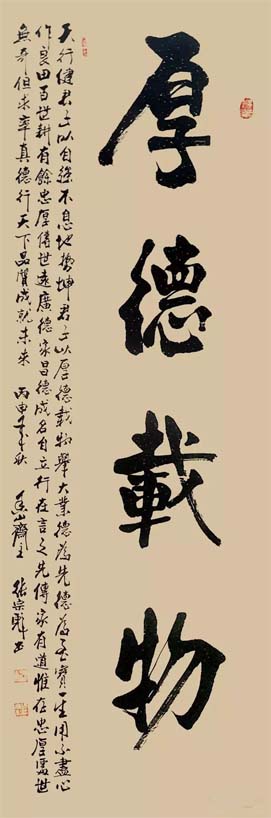 厚德載物
天行健君子以自強不息地勢坤君子以厚德載物舉大業德為先德為至寶一生用不盡心
作良田百世耕有餘忠厚傳世遠廣德家昌德成名自立行在言之先傳家有道惟在忠厚處世
無奇但求率真德行天下品質成就未來 丙申年秋 山齋主 張宗書